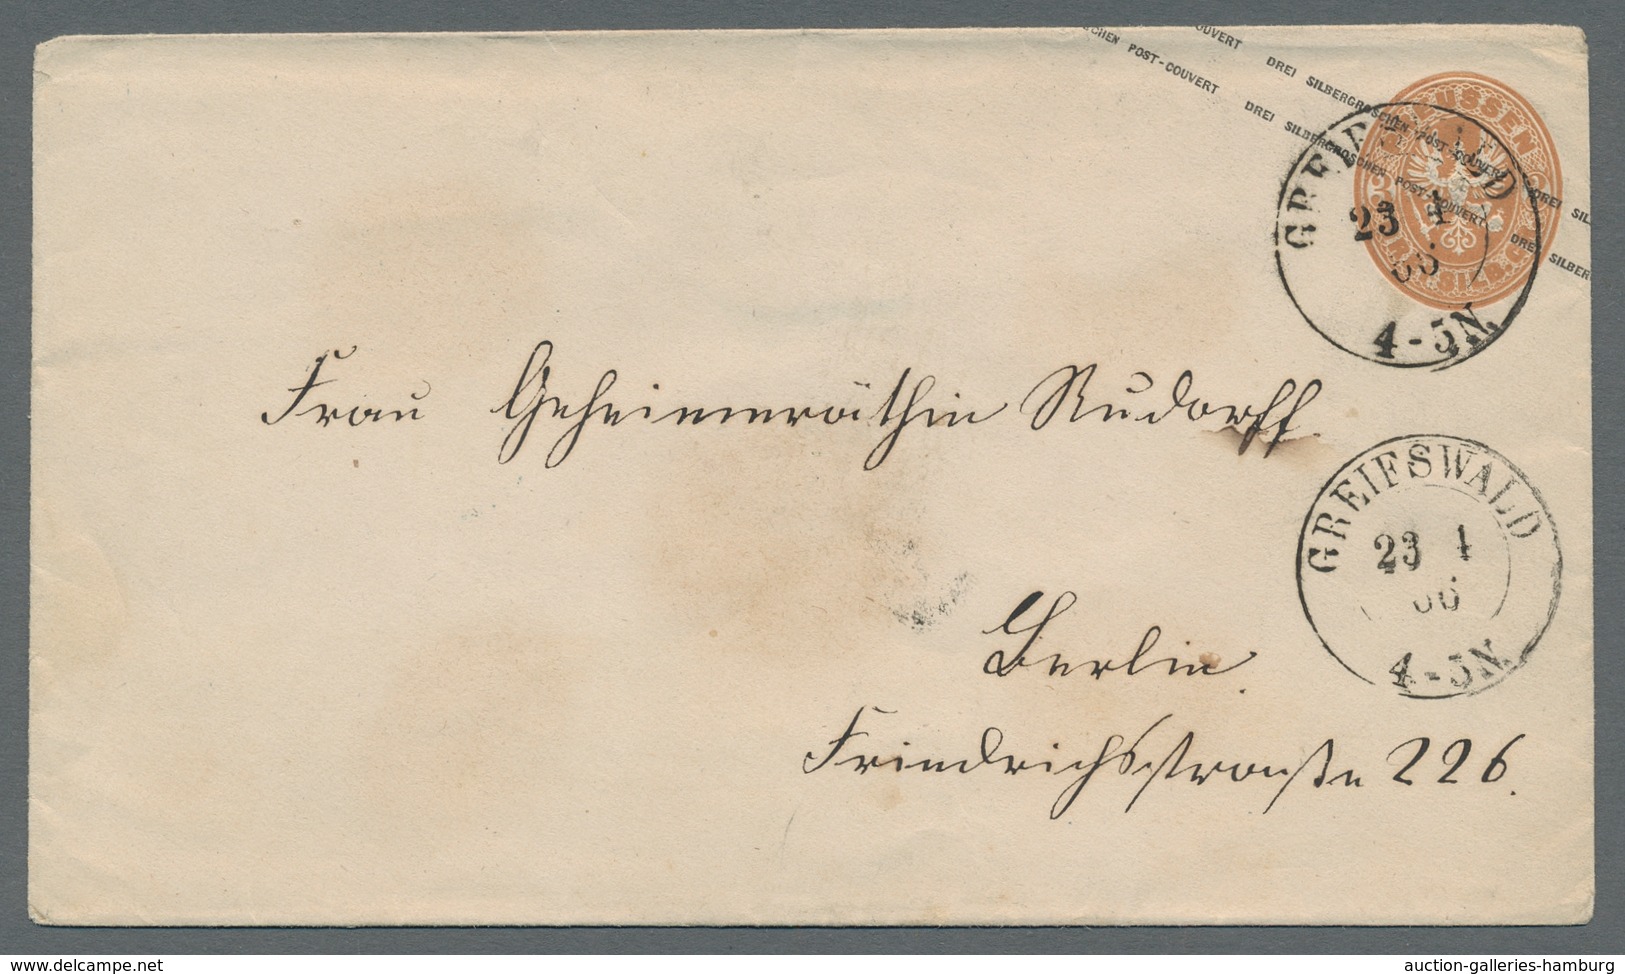 OUVERT DREI SILBERGROSCHEN POST-COUVERT DREI SIL
SCHEN POST-COUVERT DREI SILBERGROSCHEN POST-COUVERT DREI SILBER
GREIFSWALD
23 4
66
4-5N.
Frau Geheimeräthin Rudorff.
GREIFSWALD
23 4
66
4-5N.
Berlin.
Friedrichsstraße 226.
auction-galleries-hamburg